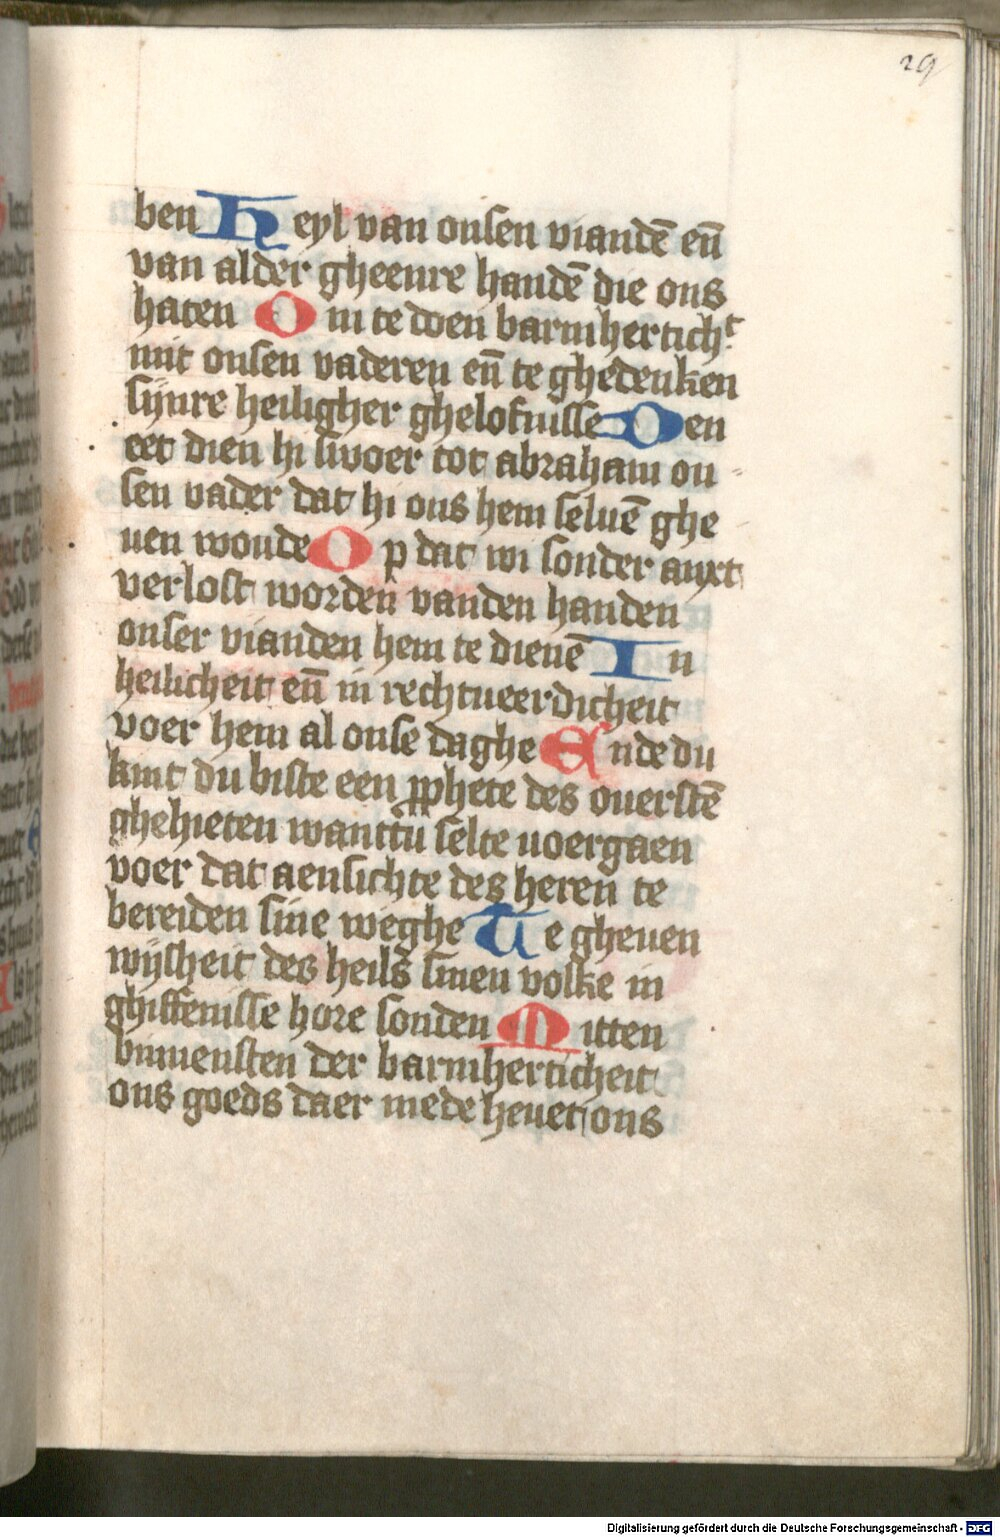 29
ben Heyl van onsen viandē eñ
van alder gheenre handē die ons
haten Om te doen barmhertichᵗ
mit onsen vaderen eñ te ghedenken
sijnre heiligher ghelofnisse Den
eet dien hi swoer tot abraham on
sen vader dat hi ons hem seluē ghe
uen woude Op dat wi sonder anxt
verlost worden vanden handen
onser vianden hem te dienē In
heilicheit eñ in rechtueerdicheit
voer hem al onse daghe Ende du
kint du biste een ꝓphete des ouerstē
ghehieten want tu selte voergaen
voer dat aensichte des heren te
bereiden sine weghe Te gheuen
wijsheit des heils sinen volke in
ghiffenisse hore sonden Mitten
binnensten der barmherticheit
ons goeds daer mede heuet ons
Digitalisierung gefördert durch die Deutsche Forschungsgemeinschaft - DFG